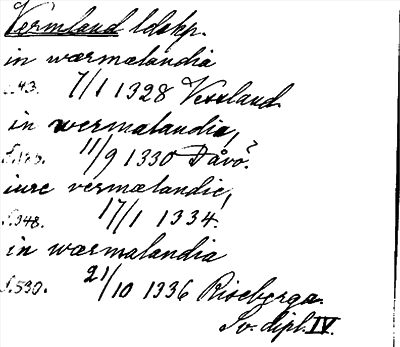 Vermland ldskp.
in wærmælandia
s.43. 7/1 1328 Vessland
in wermalandia,
s.175. 11/9 1330 Dåvö?
iure vermælandie,
s.348. 17/1 1334.
in wærmalandia
s.530. 21/10 1336 Riseberga.
Sv. dipl. IV.